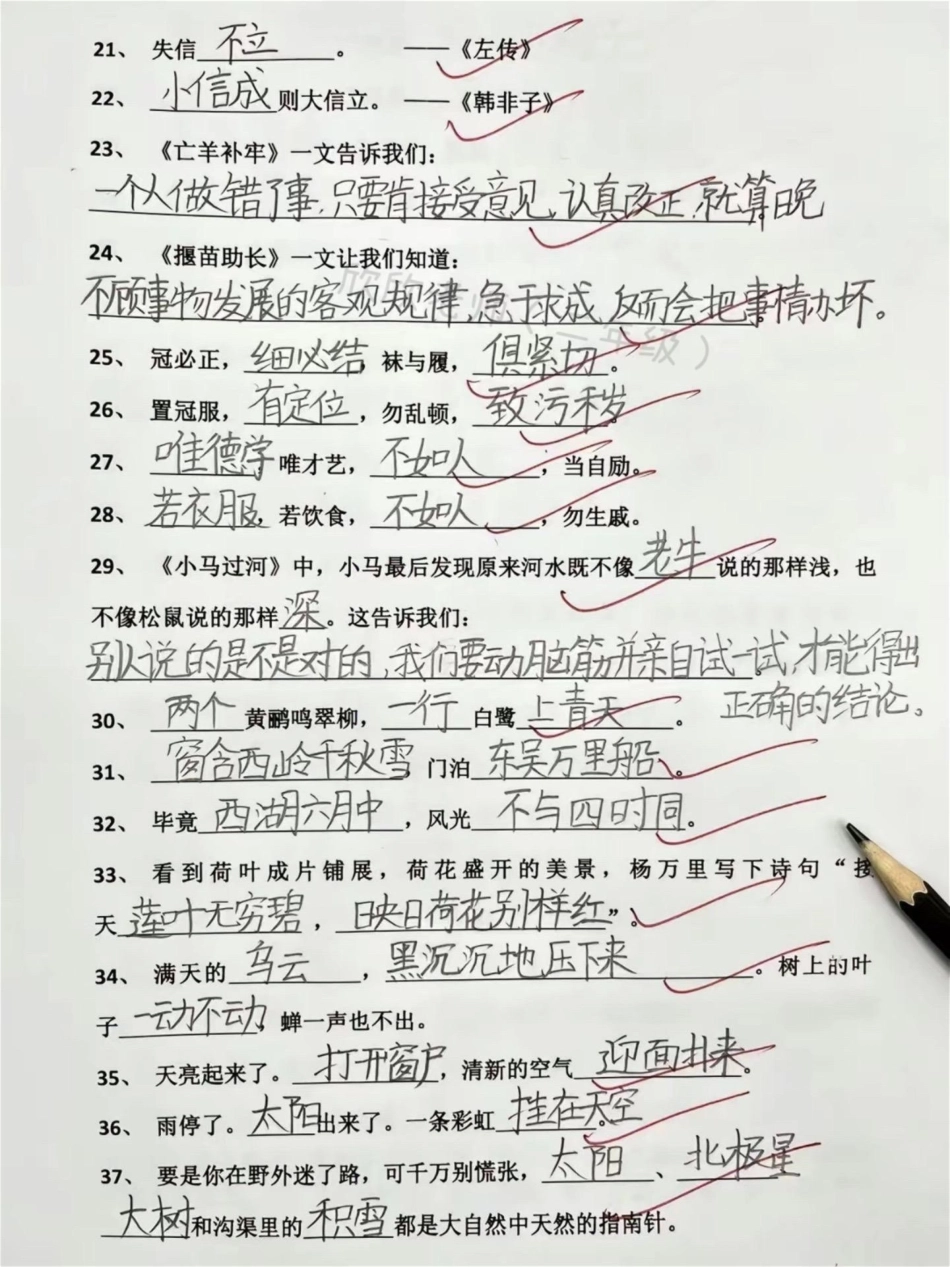 21、 失信不立。 ——《左传》
22、 小信成则大信立。 ——《韩非子》
23、 《亡羊补牢》一文告诉我们：
一个人做错了事，只要肯接受意见，认真改正，就算晚
24、 《揠苗助长》一文让我们知道：
不顾事物发展的客观规律，急于求成，反而会把事情办坏。
25、 冠必正，细必结，袜与履，俱紧切。
26、 置冠服，有定位，勿乱顿，致污秽。
27、 唯德学唯才艺，不如人，当自励。
28、 若衣服，若饮食，不如人，勿生戚。
29、 《小马过河》中，小马最后发现原来河水既不像老牛说的那样浅，也
不像松鼠说的那样深。这告诉我们：
别人说的是不是对的，我们要动脑筋并亲自试一试，才能得出
正确的结论。
30、 两个黄鹂鸣翠柳，一行白鹭上青天。
31、 窗含西岭千秋雪，门泊东吴万里船。
32、 毕竟西湖六月中，风光不与四时同。
33、 看到荷叶成片铺展，荷花盛开的美景，杨万里写下诗句“接
天莲叶无穷碧，映日荷花别样红”。
34、 满天的乌云，黑沉沉地压下来。树上的叶
子一动不动，蝉一声也不出。
35、 天亮起来了。打开窗户，清新的空气迎面扑来。
36、 雨停了。太阳出来了。一条彩虹挂在天空。
37、 要是你在野外迷了路，可千万别慌张，太阳、北极星
大树和沟渠里的积雪都是大自然中天然的指南针。